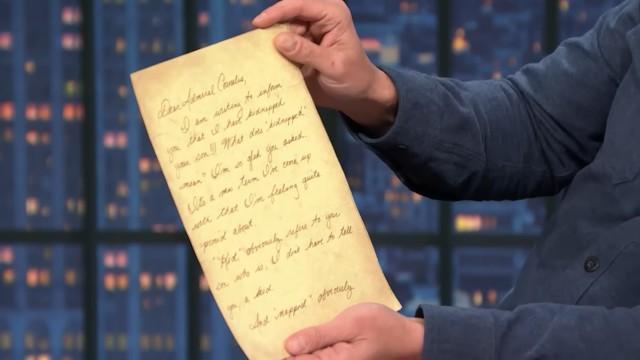 Dear Admiral Cornelis,
I am writing to inform
you that I have kidnapped
your son!!! What does "kidnapped"
mean? I'm so glad you asked.
It's a new term I've come up
with that I'm feeling quite
proud about.
"Kid" obviously refers to your
son who is, I don't have to tell
you, a kid.
And "napped" obviously